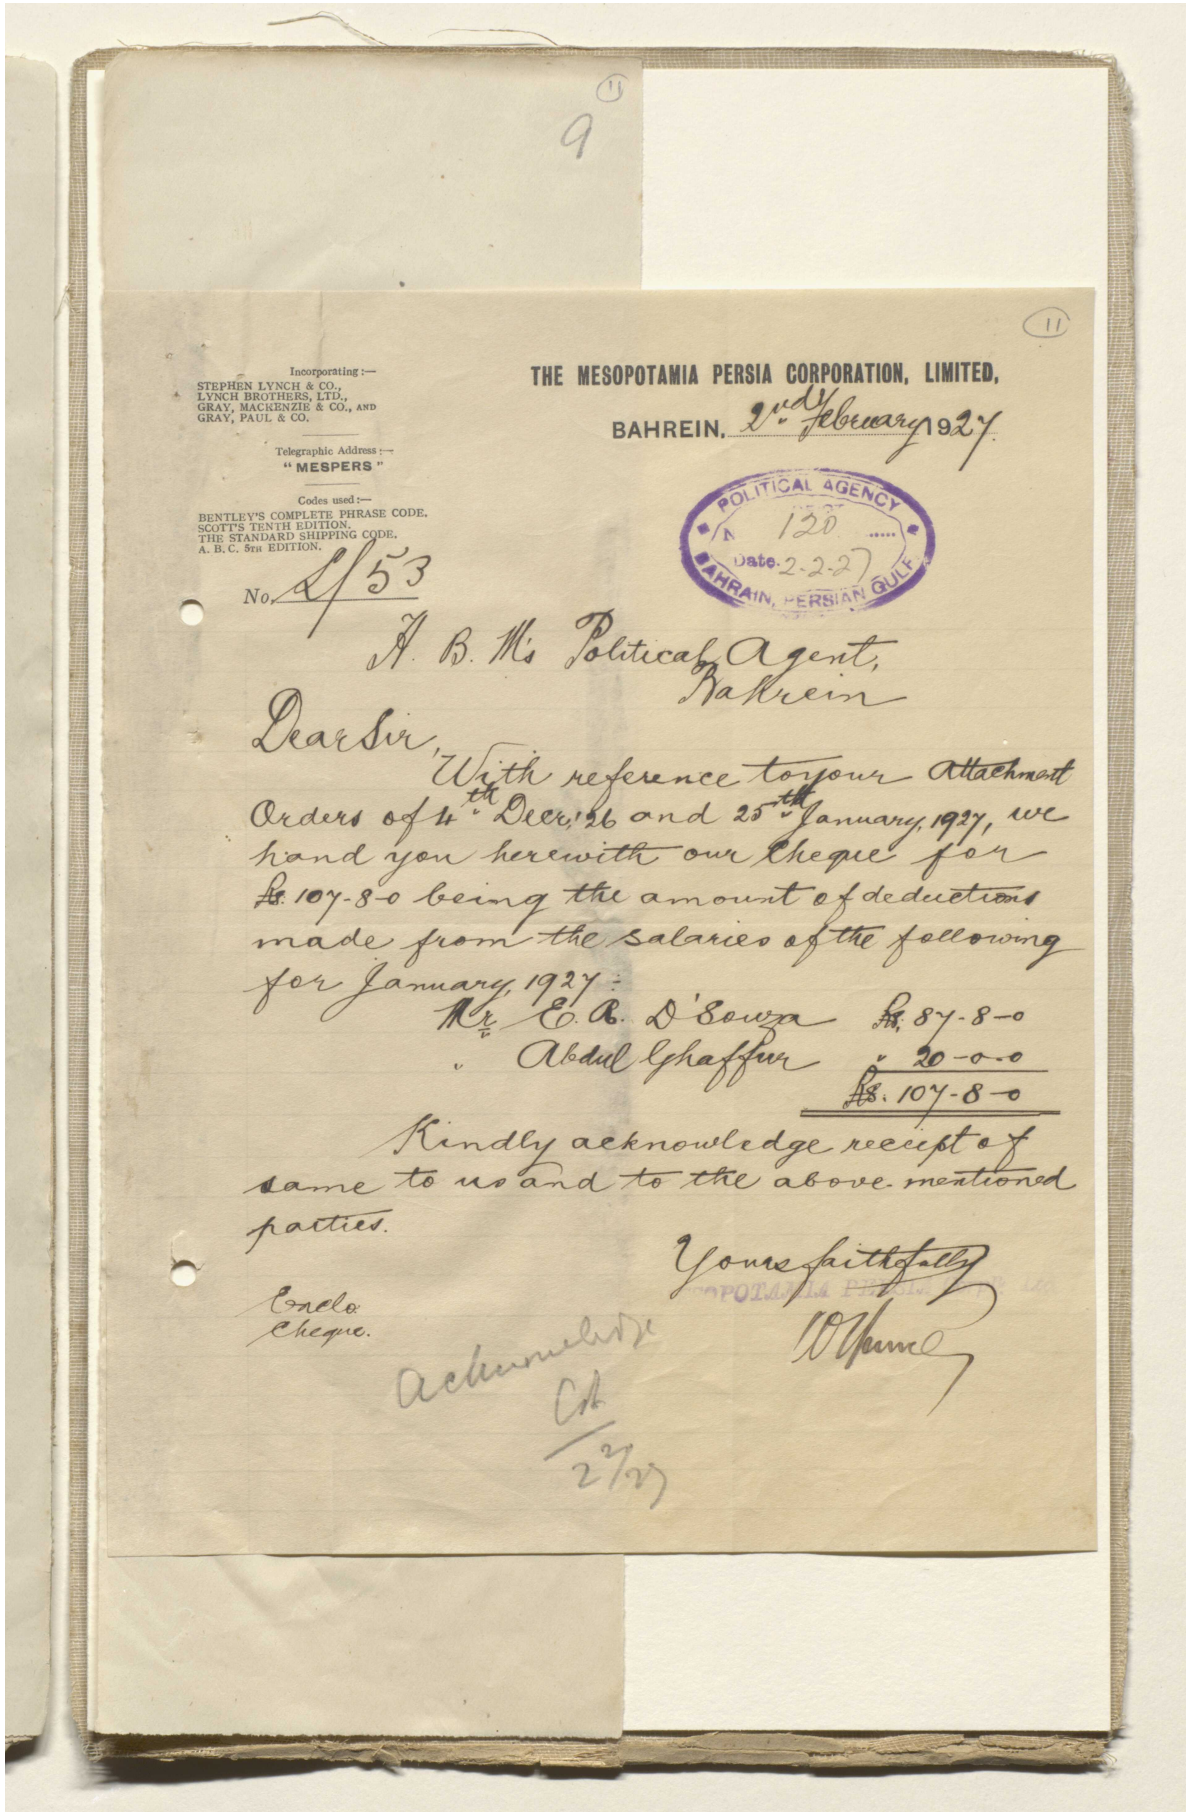 11
9
11
Incorporating :—
STEPHEN LYNCH & CO.,
LYNCH BROTHERS, LTD.,
GRAY, MACKENZIE & CO., AND
GRAY, PAUL & CO.
Telegraphic Address :—
"MESPERS"
Codes used :—
BENTLEY'S COMPLETE PHRASE CODE.
SCOTT'S TENTH EDITION.
THE STANDARD SHIPPING CODE.
A. B. C. 5TH EDITION.
No. L/53
THE MESOPOTAMIA PERSIA CORPORATION, LIMITED,
BAHREIN, 2nd February 1927.
POLITICAL AGENCY
120
Date. 2-2-27
BAHRAIN, PERSIAN GULF
H. B. M's Political Agent,
Bahrein
Dear Sir,
With reference to your Attachment
Orders of 4th Decr. '26 and 25th January, 1927, we
hand you herewith our cheque for
Rs. 107-8-0 being the amount of deductions
made from the salaries of the following
for January, 1927 :
Mr E. R. D'Souza Rs. 87-8-0
" Abdul Ghaffur " 20-0-0
Rs. 107-8-0
Kindly acknowledge receipt of
same to us and to the above-mentioned
parties.
Yours faithfully
Enclo.
Cheque.
Acknowledge
2/2/27